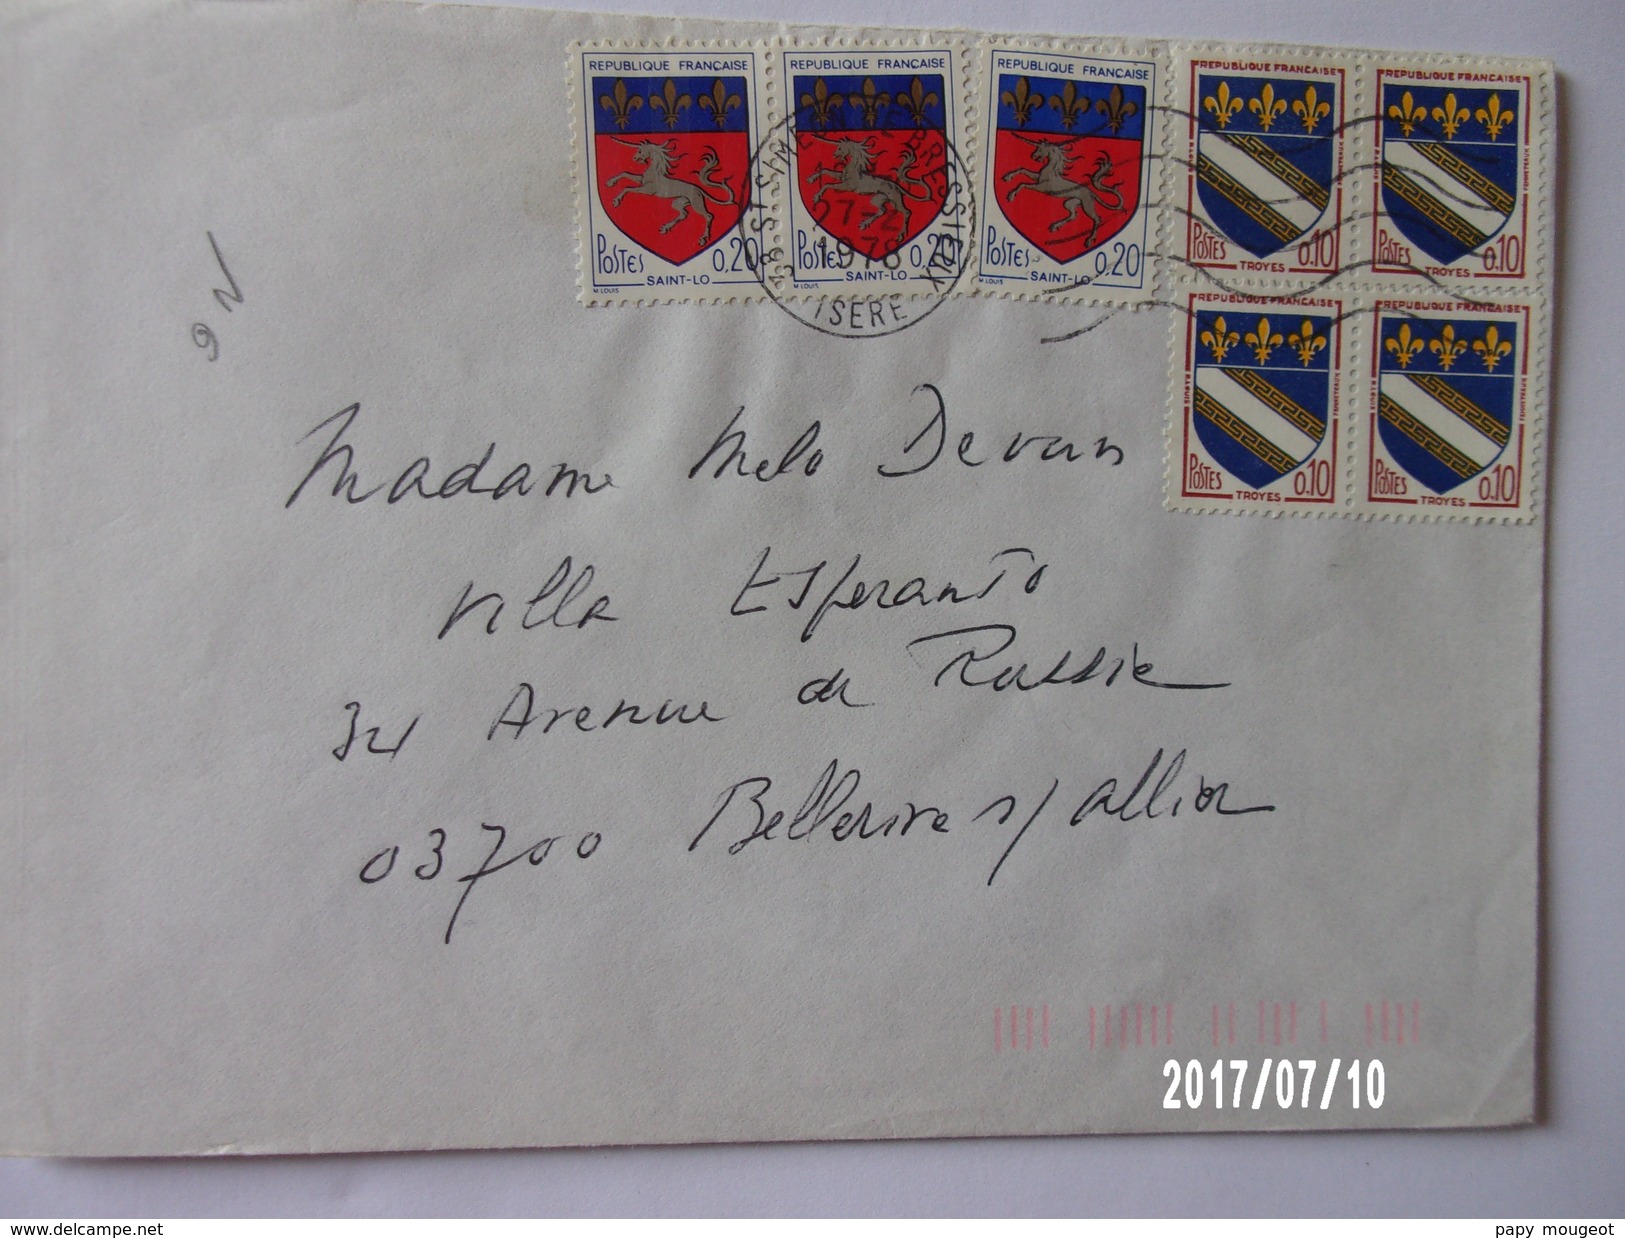 REPUBLIQUE FRANÇAISE
POSTES 0,20
SAINT-LO
M.LOUIS
REPUBLIQUE FRANÇAISE
POSTES 0,20
SAINT-LO
M.LOUIS
REPUBLIQUE FRANÇAISE
POSTES 0,20
SAINT-LO
M.LOUIS
REPUBLIQUE FRANÇAISE
POSTES 0,10
TROYES
REPUBLIQUE FRANÇAISE
POSTES 0,10
TROYES
REPUBLIQUE FRANÇAISE
POSTES 0,10
TROYES
REPUBLIQUE FRANÇAISE
POSTES 0,10
TROYES
38 ST SIMEON DE BRESSIEUX
27-2
1978
ISERE
Madame Melo Devan
Villa Esperanto
34 Avenue de Russie
03700 Bellerive s/ allier
2017/07/10
www.delcampe.net
papy mougeot